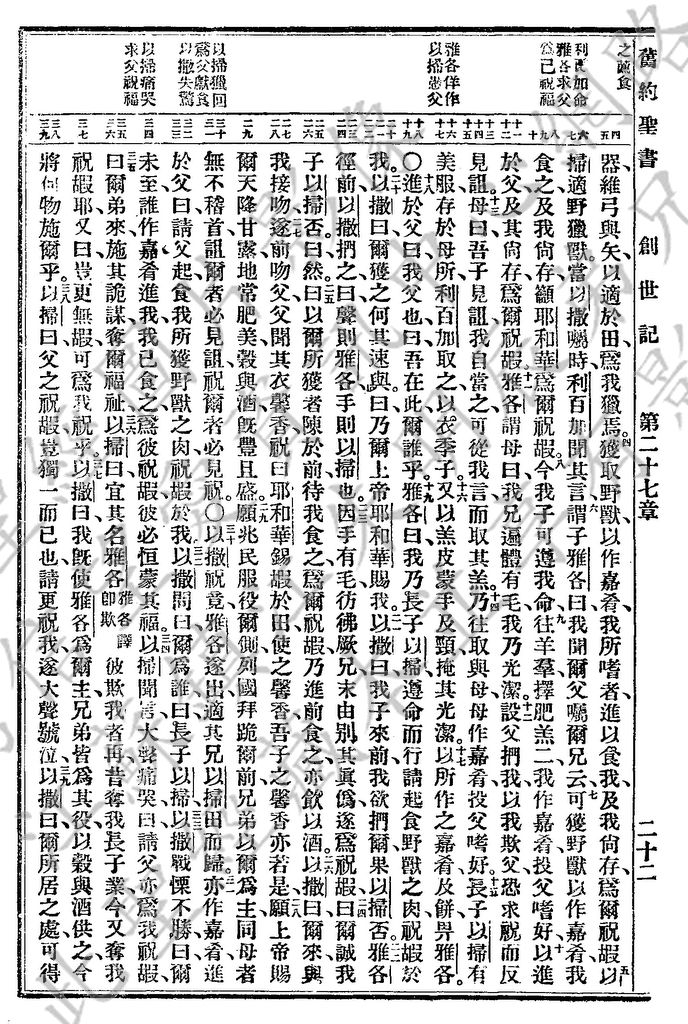 舊約聖書 創世記 第二十七章 二十二
之蔬食
利百加命
雅各求父
爲己祝福
雅各佯作
以掃惑父
以掃獵回
爲父獻食
以撒失驚
以掃痛哭
求父祝福
器維弓與矢以適於田爲我獵焉獲取野獸以作嘉肴我所嗜者進以食我及我尙存爲爾祝嘏以
掃適野獵獸當以撒囑時利百加聞其言謂子雅各曰我聞爾父囑爾兄云可獲野獸以作嘉肴我
食之及我尙存籲耶和華爲爾祝嘏今我子可遵我命往羊羣擇肥羔二我作嘉肴投父嗜好以進
於父及其尙存爲爾祝嘏雅各謂母曰我兄遍體有毛我乃光潔設父捫我以我欺父恐求祝而反
見詛母曰吾子見詛我自當之可從我言而取其羔乃往取與母母作嘉肴投父嗜好長子以掃有
美服存於母所利百加取之以衣季子又以羔皮蒙手及頸掩其光潔以所作之嘉肴及餅畀雅各
〇進於父曰我父也曰吾在此爾誰乎雅各曰我乃長子以掃遵命而行請起食野獸之肉祝嘏於
我以撒曰爾獲之何其速與曰乃爾上帝耶和華賜我以撒曰我子來前我欲捫爾果以掃否雅各
徑前以撒捫之曰聲則雅各手則以掃也因手有毛彷彿厥兄末由別其眞僞遂爲祝嘏曰爾誠我
子以掃否曰然曰以爾所獲者陳於前待我食之爲爾祝嘏乃進前食之亦飮以酒以撒曰爾來與
我接吻遂前吻父父聞其衣馨香祝曰耶和華錫嘏於田使之馨香吾子之馨香亦若是願上帝賜
爾天降甘露地常肥美穀與酒旣豐且盛願兆民服役爾側列國拜跪爾前兄弟以爾爲主同母者
無不稽首詛爾者必見詛祝爾者必見祝〇以撒祝竟雅各遂出適其兄以掃田而歸亦作嘉肴進
於父曰請父起食我所獲野獸之肉祝嘏於我以撒問曰爾爲誰曰長子以掃以撒戰慄不勝曰爾
未至誰作嘉肴進我我已食之爲彼祝嘏彼必恒蒙其福以掃聞言大聲痛哭曰請父亦爲我祝嘏
曰爾弟來施其詭謀奪爾福祉以掃曰宜其名雅各雅各譯卽欺彼欺我者再昔奪我長子業今又奪我
祝嘏耶又曰豈更無嘏可爲我祝乎以撒曰我旣使雅各爲爾主兄弟皆爲其役以穀與酒供之今
將何物施爾乎以掃曰父之祝嘏豈獨一而已也請更祝我遂大聲號泣以撒曰爾所居之處可得